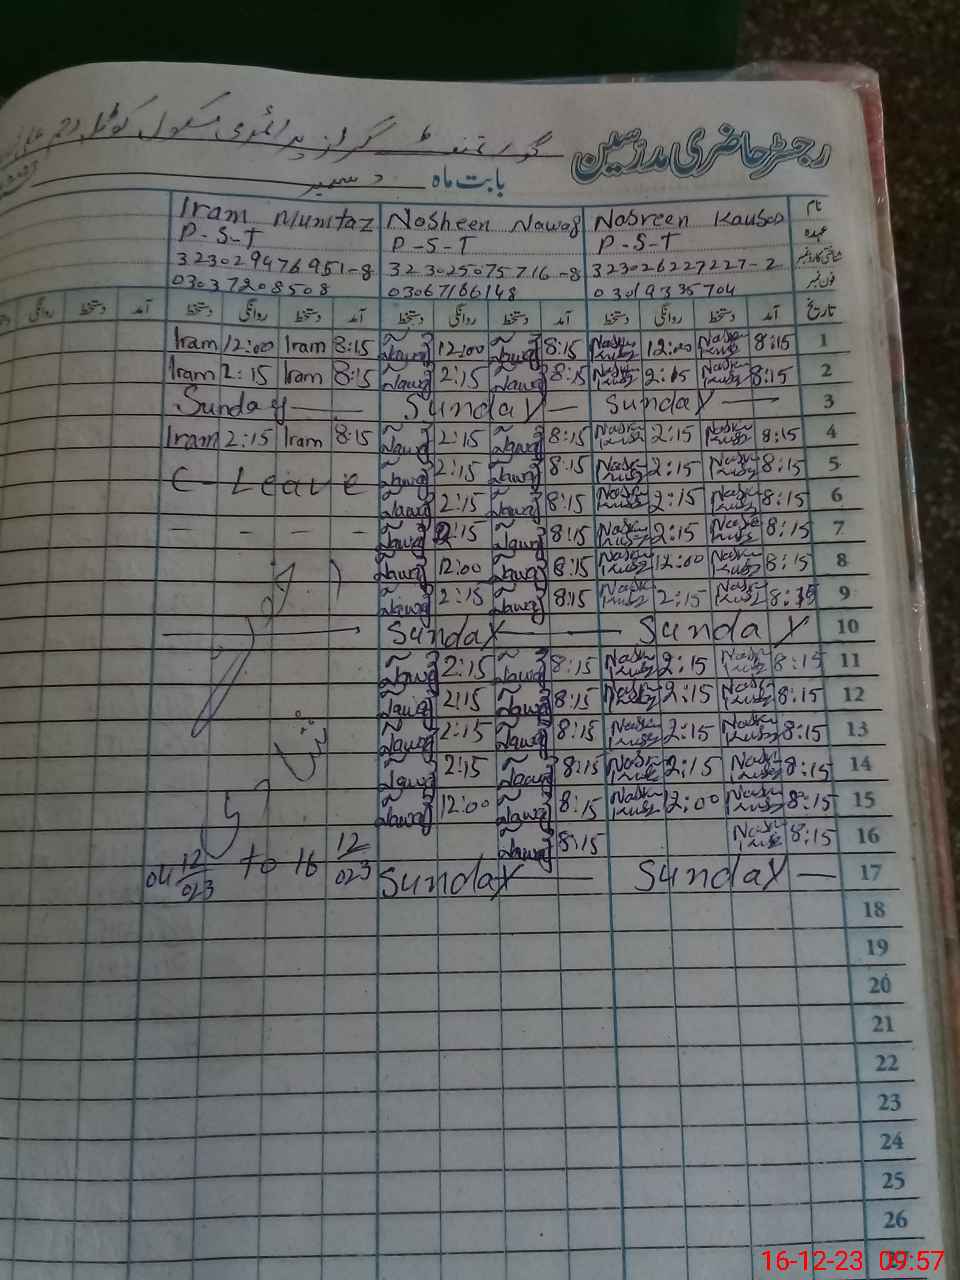 رجسٹر حاضری مدرسین گورنمنٹ گرلز پرائمری سکول کوٹلہ رحم علی
بابت ماہ دسمبر
نام Nasreen Kausar Nosheen Nawaz Iram Mumtaz
عہدہ P-S-T P-S-T P-S-T
شناختی کارڈ نمبر 323026227227-2 323025075716-8 323029476951-8
فون نمبر 03019335704 03067166148 03037208508
تاریخ آمد دستخط روانگی دستخط آمد دستخط روانگی دستخط آمد دستخط روانگی دستخط آمد دستخط روانگی
Iram 12:00 Iram 8:15 Nawaz 12:00 Nawaz 8:15 Nasreen Kausar 12:00 Nasreen Kausar 8:15 1
Iram 2:15 Iram 8:15 Nawaz 2:15 Nawaz 8:15 Nasreen Kausar 2:15 Nasreen Kausar 8:15 2
Sunday Sunday Sunday 3
Iram 2:15 Iram 8:15 Nawaz 2:15 Nawaz 8:15 Nasreen Kausar 2:15 Nasreen Kausar 8:15 4
C-Leave Nawaz 2:15 Nawaz 8:15 Nasreen Kausar 2:15 Nasreen Kausar 8:15 5
Nawaz 2:15 Nawaz 8:15 Nasreen Kausar 2:15 Nasreen Kausar 8:15 6
- - - - Nawaz 2:15 Nawaz 8:15 Nasreen Kausar 2:15 Nasreen Kausar 8:15 7
Nawaz 12:00 Nawaz 8:15 Nasreen Kausar 12:00 Nasreen Kausar 8:15 8
Nawaz 2:15 Nawaz 8:15 Nasreen Kausar 2:15 Nasreen Kausar 8:15 9
Sunday Sunday 10
Nawaz 2:15 Nawaz 8:15 Nasreen Kausar 2:15 Nasreen Kausar 8:15 11
Nawaz 2:15 Nawaz 8:15 Nasreen Kausar 2:15 Nasreen Kausar 8:15 12
Nawaz 2:15 Nawaz 8:15 Nasreen Kausar 2:15 Nasreen Kausar 8:15 13
Nawaz 2:15 Nawaz 8:15 Nasreen Kausar 2:15 Nasreen Kausar 8:15 14
Nawaz 12:00 Nawaz 8:15 Nasreen Kausar 12:00 Nasreen Kausar 8:15 15
Nawaz 8:15 Nasreen Kausar 8:15 16
04 12/023 to 16 12/023 Sunday Sunday 17
18
19
20
21
22
23
24
25
26
27
16-12-23 09:57